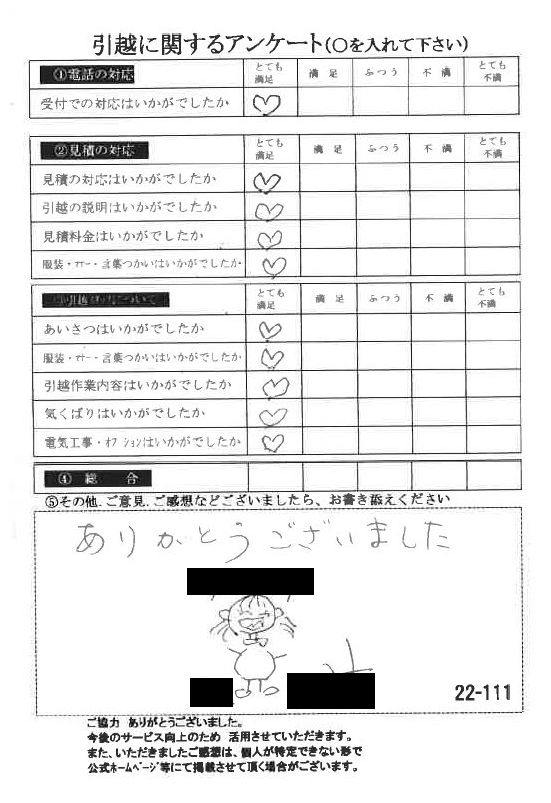 引越に関するアンケート(〇を入れて下さい)
①電話の対応 とても満足 満足 ふつう 不満 とても不満
受付での対応はいかがでしたか
②見積の対応 とても満足 満足 ふつう 不満 とても不満
見積の対応はいかがでしたか
引越の説明はいかがでしたか
見積料金はいかがでしたか
服装・マナー・言葉つかいはいかがでしたか
とても満足 満足 ふつう 不満 とても不満
あいさつはいかがでしたか
服装・マナー・言葉つかいはいかがでしたか
引越作業内容はいかがでしたか
気くばりはいかがでしたか
電気工事・オプションはいかがでしたか
④ 総 合
⑤その他.ご意見.ご感想などございましたら、お書き添えください
ありがとうございました
22-111
ご協力 ありがとうございました。
今後のサービス向上のため 活用させていただきます。
また、いただきましたご感想は、個人が特定できない形で
公式ホームページ等にて掲載させて頂く場合がございます。